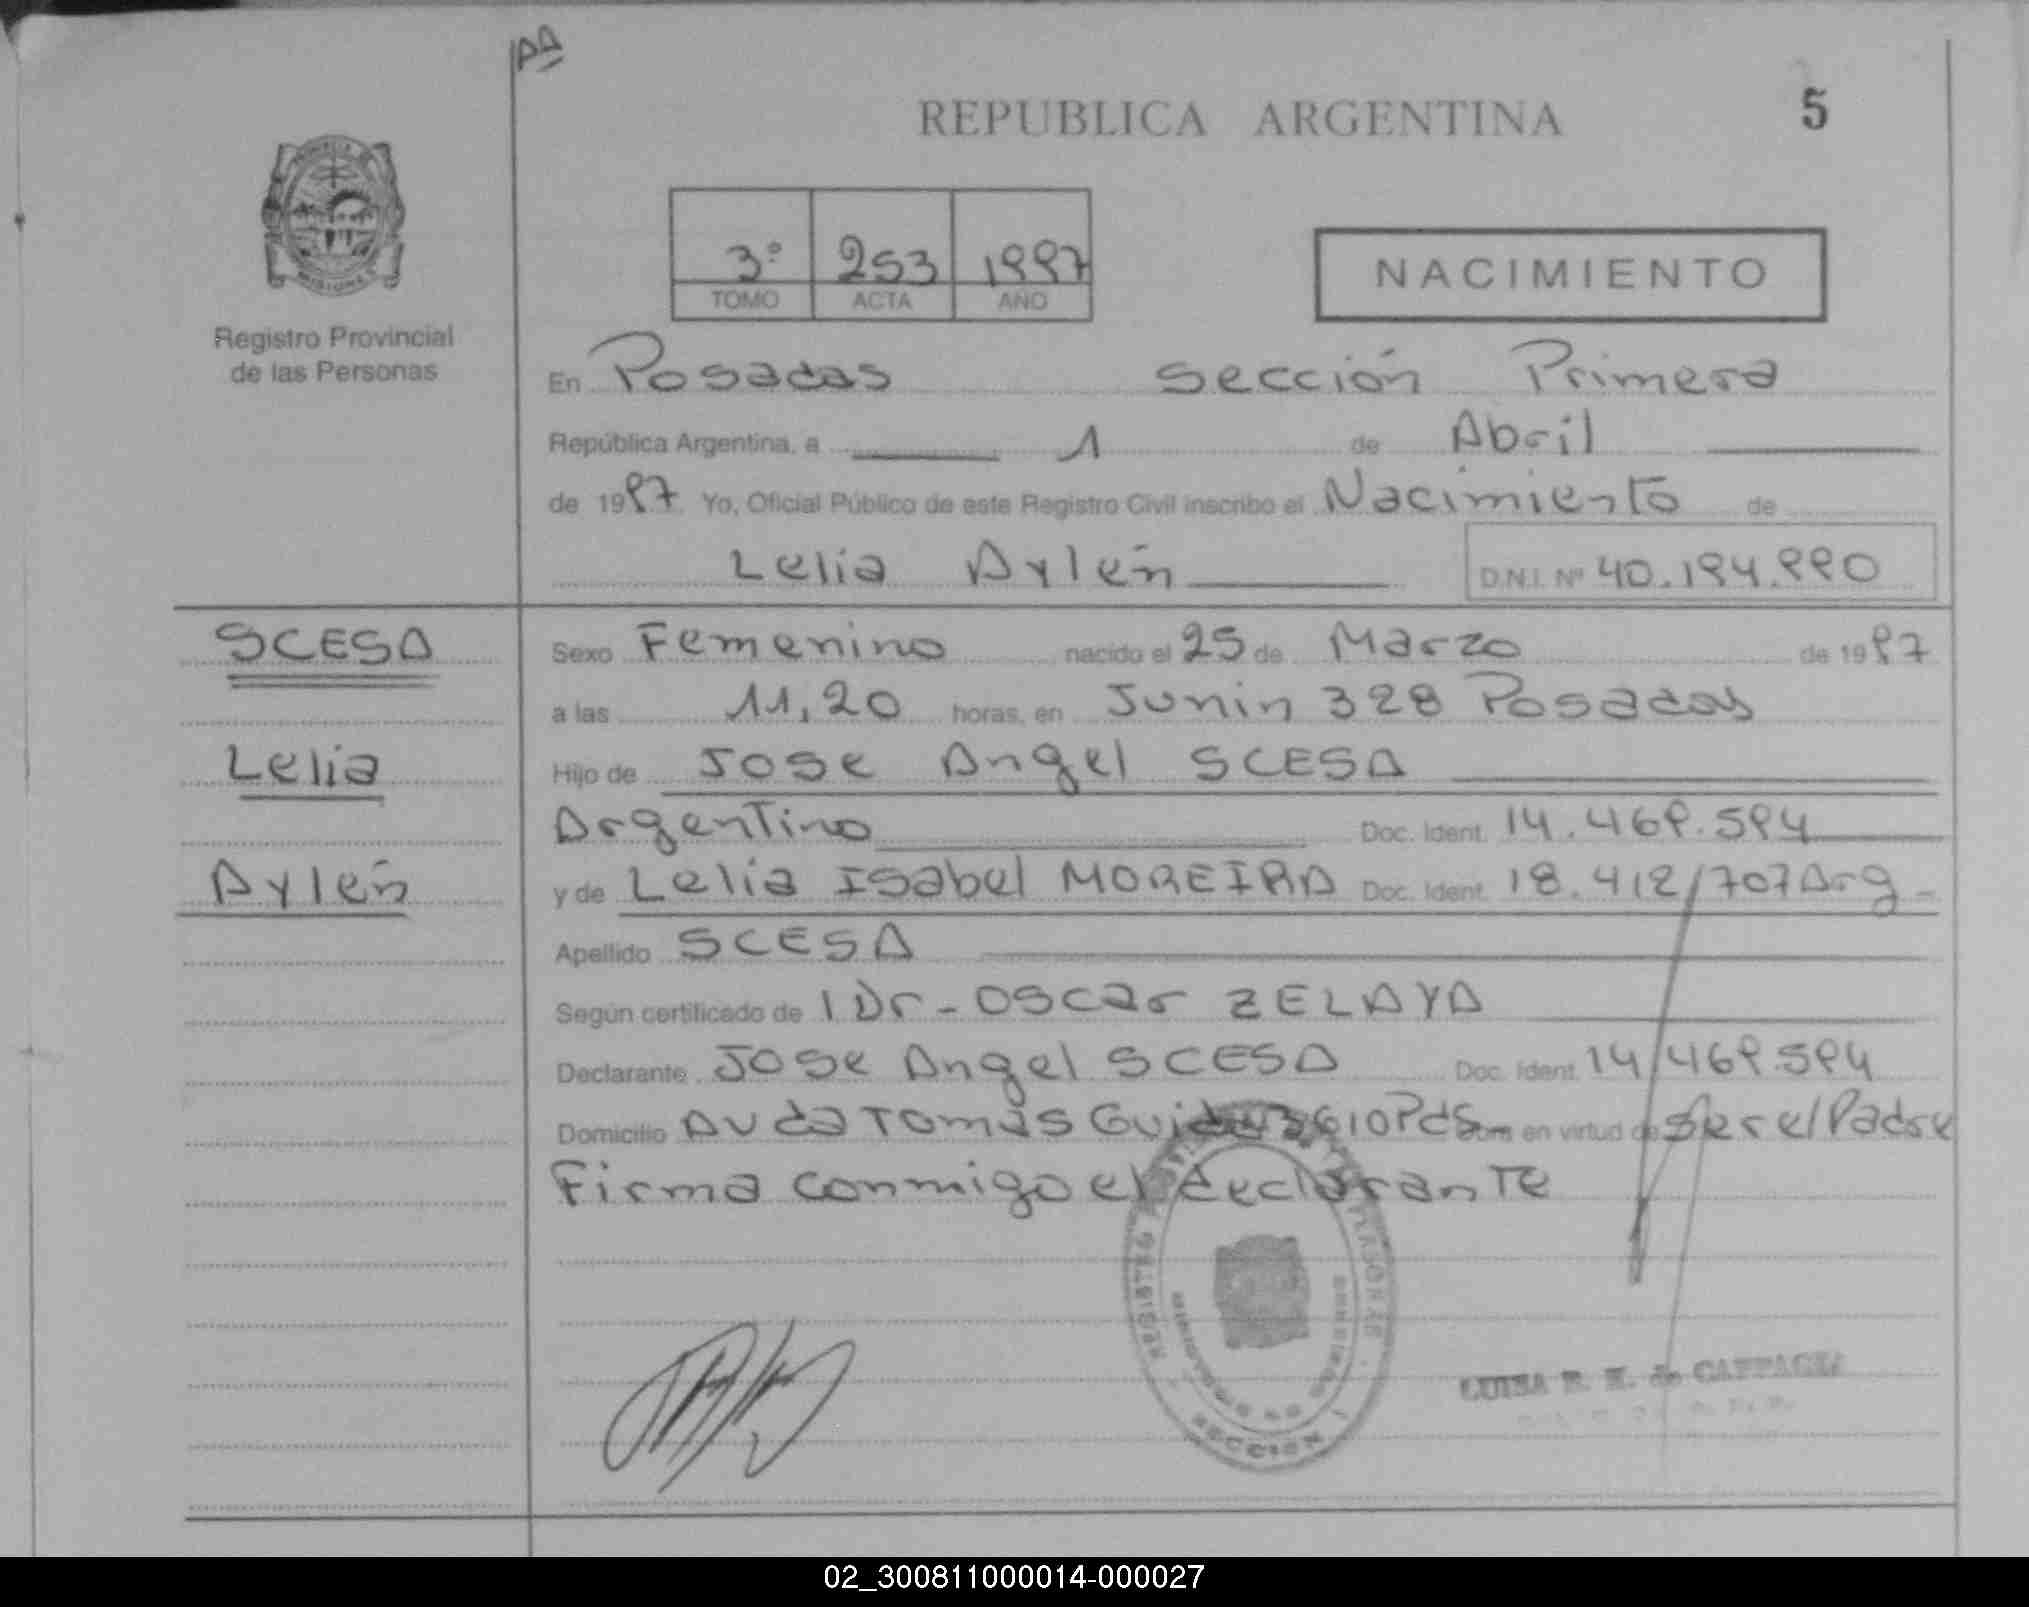 AA
REPUBLICA ARGENTINA
5
PROVINCIA DE MISIONES
Registro Provincial
de las Personas
3º 253 1997
TOMO ACTA AÑO
NACIMIENTO
En Posadas Sección Primera
República Argentina, a 1 de Abril
de 1997 Yo, Oficial Público de este Registro Civil inscribo el Nacimiento de
Lelia Aylén
D.N.I. Nº 40.194.990
SCESA
Lelia
Aylén
Sexo Femenino nacido el 25 de Marzo de 1997
a las 11,20 horas, en Junin 328 Posadas
Hijo de Jose Angel SCESA
Argentino Doc. Ident. 14.469.594
y de Lelia Isabel MOREIRA Doc. Ident. 18.412/707 Arg
Apellido SCESA
Según certificado de 1 Dr-Oscar ZELAYA
Declarante Jose Angel SCESA Doc. Ident. 14/469.594
Domicilio Avda Tomás Guido 3610 Pds en virtud de Ser el Padre
Firma conmigo el declarante
REGISTRO
SECCION 1
LUISA
02_300811000014-000027